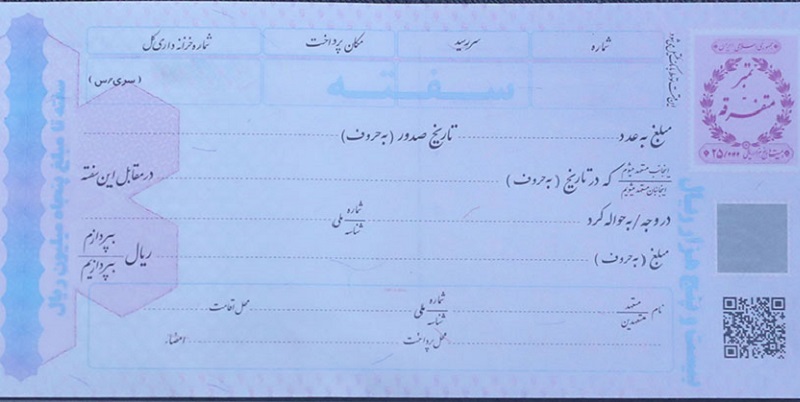 شماره
سررسید
مکان پرداخت
شماره خزانه داری کل
(سری/س)
سفته
مبلغ به عدد تاریخ صدور (به حروف)
اینجانب متعهد میشوم
اینجانبان متعهد میشویم
که در تاریخ (به حروف) در مقابل این سفته
در وجه / به حواله کرد شماره ملی
شناسه
مبلغ (به حروف) ریال بپردازم
بپردازیم
نام متعهد شماره ملی محل اقامت
متعهدین شناسه
محل پرداخت امضاء:
سفته تا مبلغ پنجاه میلیون ریال
جمهوری اسلامی ایران
تمبر
متفرقه
بیست و پنج هزار ریال